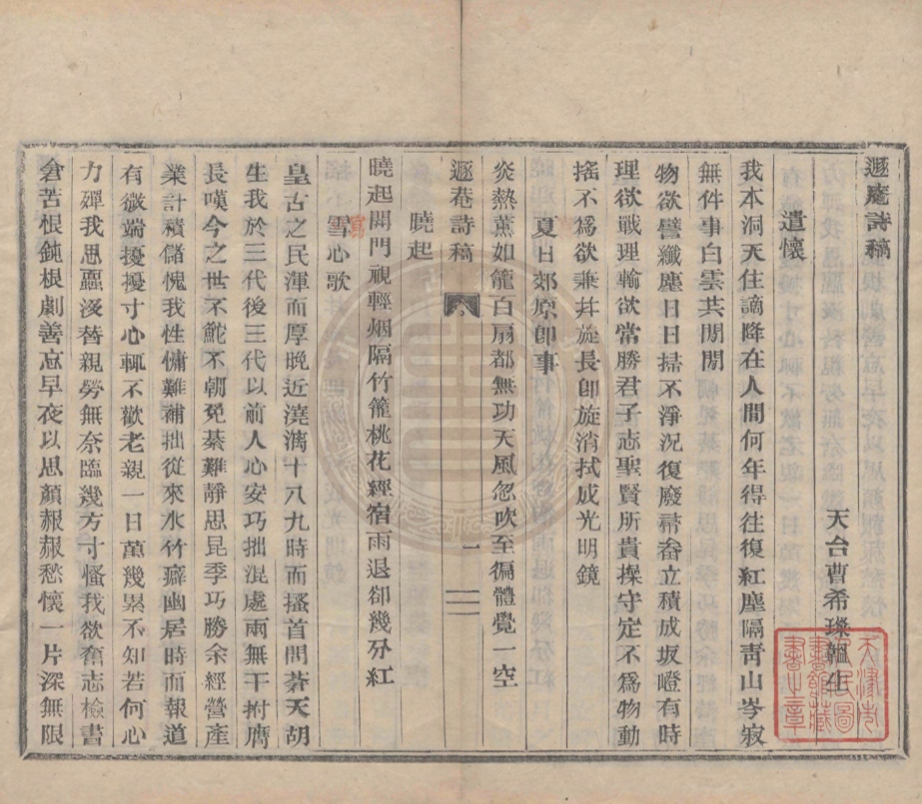 遯庵詩稿
天台曹希璨韞生
遣懷
我本洞天住謫降在人間何年得往復紅塵隔靑山岑寂
無件事白雲共閒閒
物欲譬纖塵日日掃不淨況復廢帚畚立積成坂磴有時
理欲戰理輸欲當勝君子志聖賢所貴操守定不爲物動
搖不爲欲兼幷旋長卽旋消拭成光明鏡
夏日郊原卽事
炎熱薰如籠百扇都無功天風忽吹至徧體覺一空
遯巷詩稿
一
曉起
曉起開門視輕烟隔竹籠桃花經宿雨退卻幾分紅
雪心歌
皇古之民渾而厚晚近澆漓十八九時而搔首問蒼天胡
生我於三代後三代以前人心安巧拙混處兩無干拊膺
長嘆今之世不鮀不朝免綦難靜思昆季巧勝余經營產
業計積儲愧我性慵難補拙從來水竹癖幽居時而報道
有微端擾擾寸心輒不歡老親一日萬幾累不知若何心
力殫我思匾逶替親勞無奈臨幾方寸慅我欲奮志檢書
倉苦根鈍根劇善忘早夜以思顏赧赧愁懷一片深無限
天津市
人民圖
書館藏
書之章